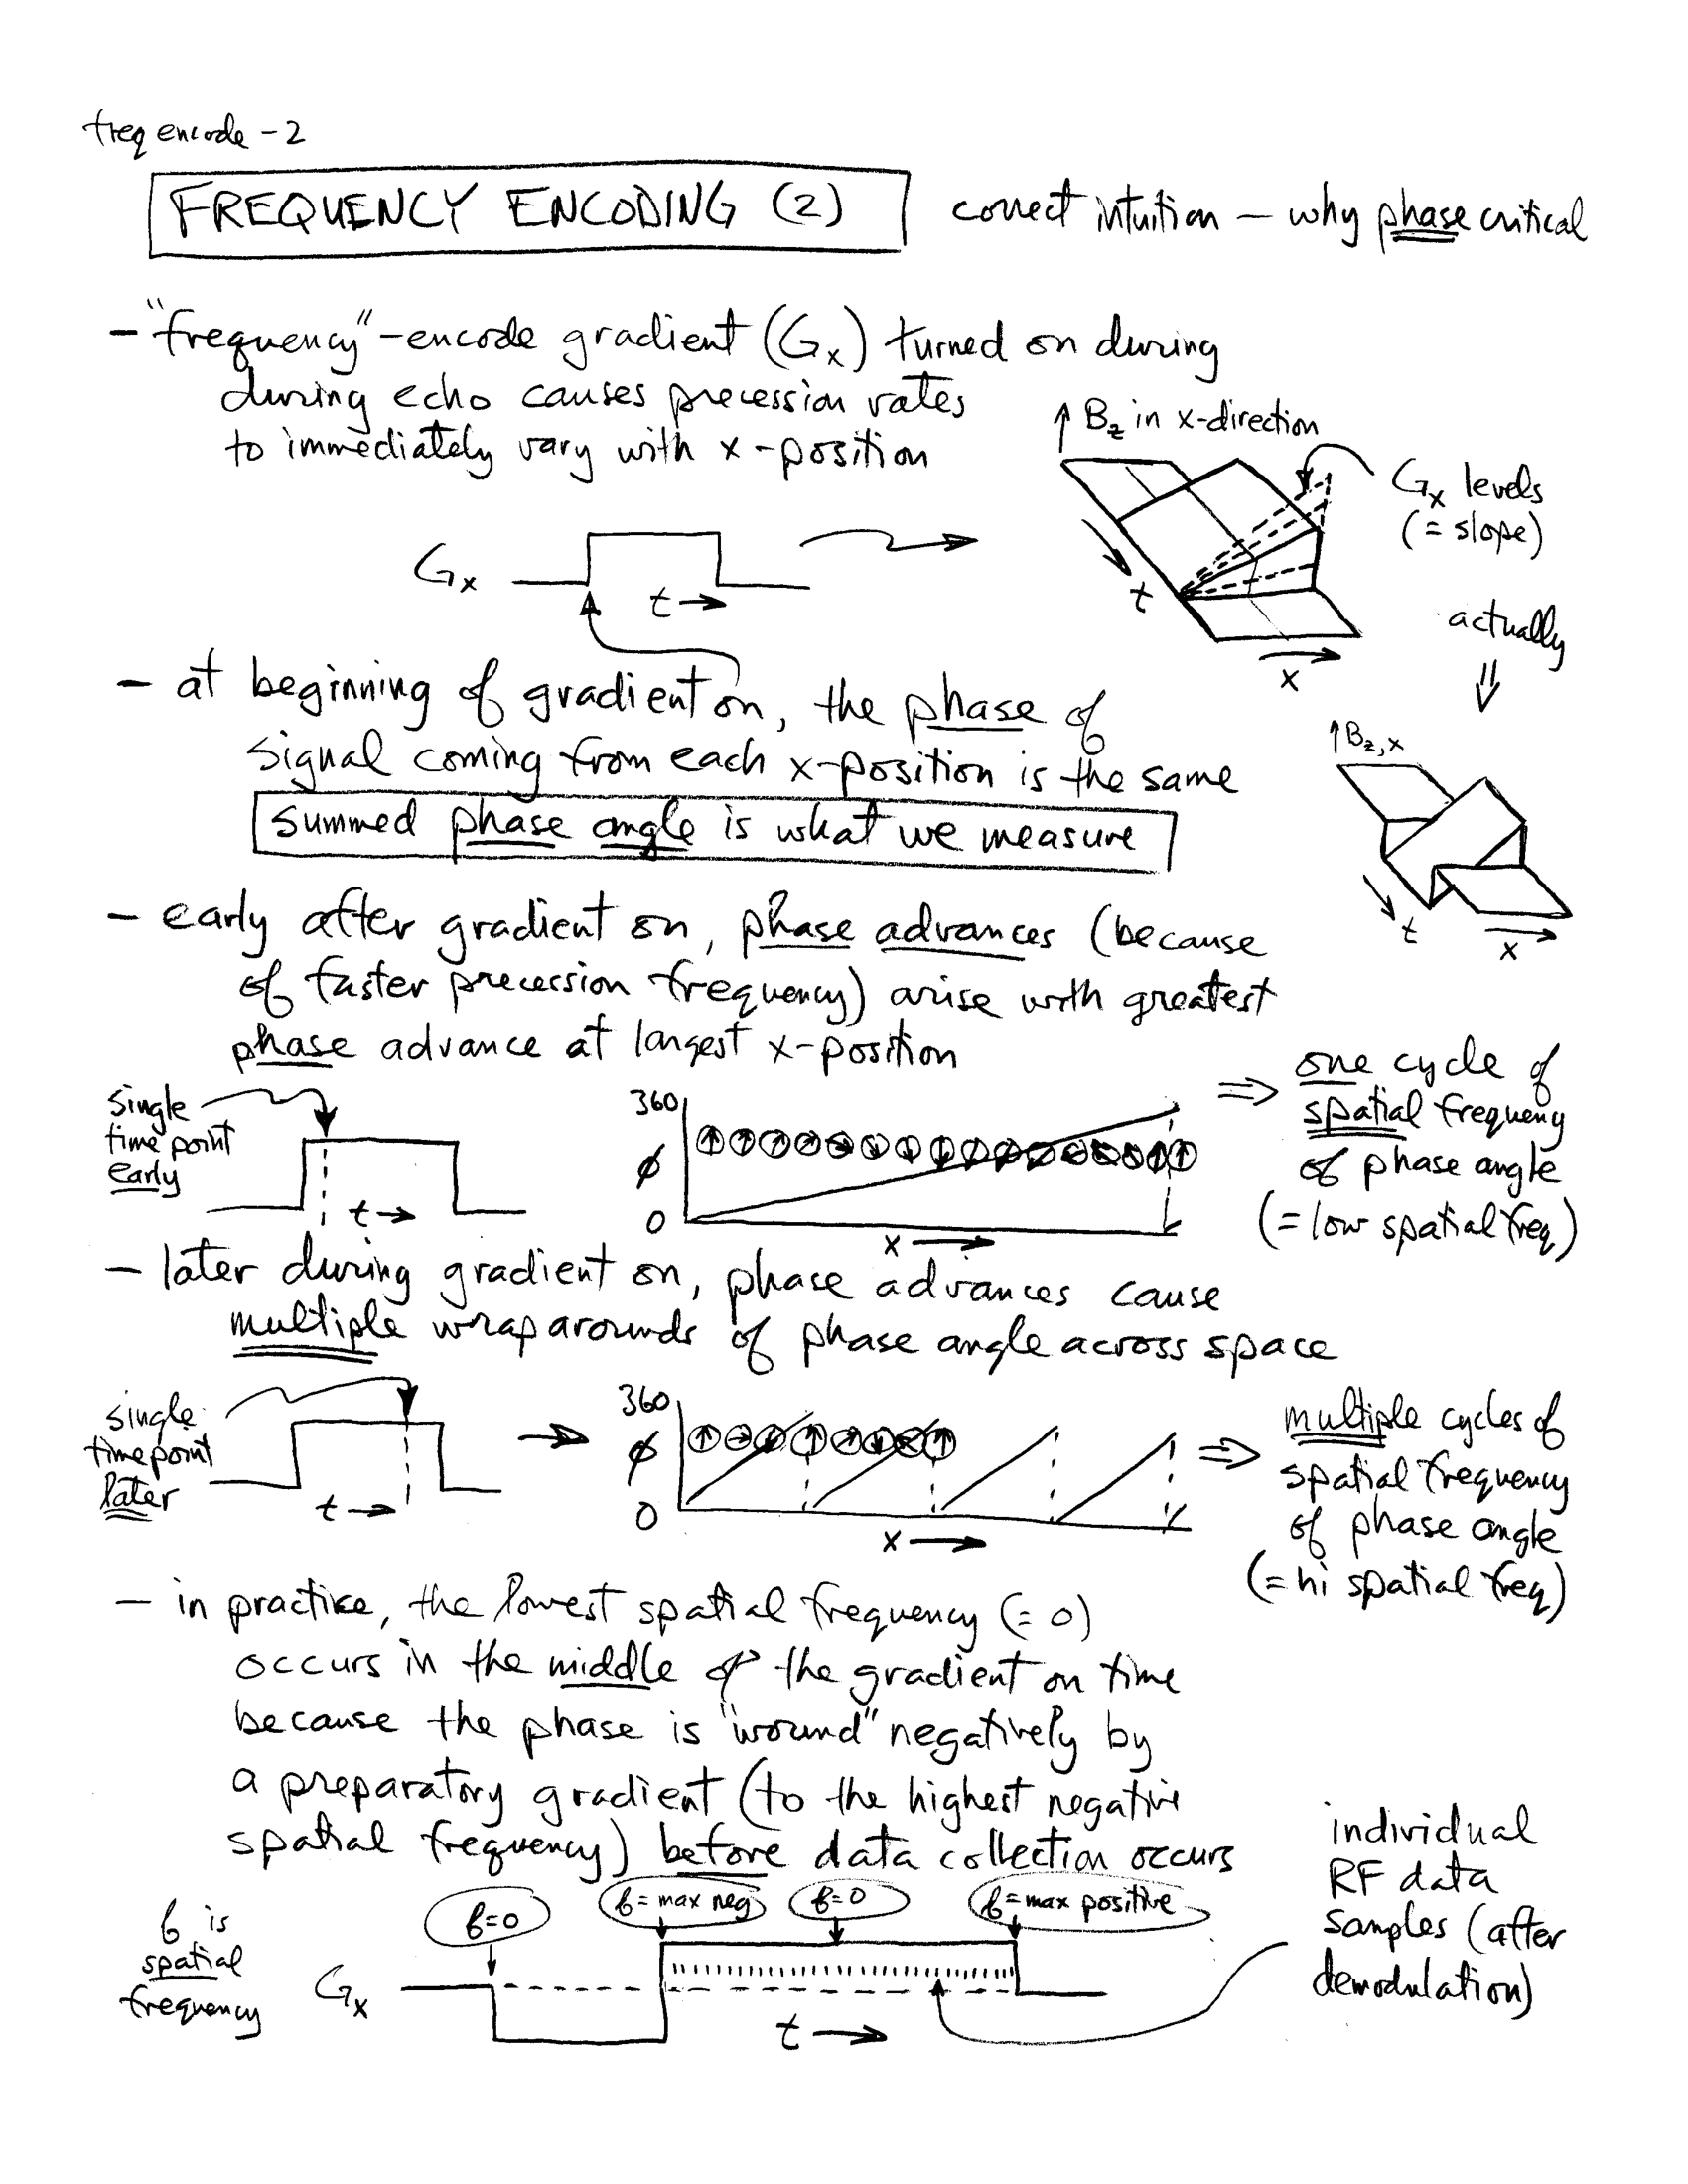 freq encode - 2
FREQUENCY ENCODING (2)
correct intuition — why phase critical
- "frequency"-encode gradient (Gx) turned on during
during echo causes precession rates
to immediately vary with x-position
↑ Bz in x-direction
Gx levels
(= slope)
Gx
t →
t
x
actually
⇓
- at beginning of gradient on, the phase of
signal coming from each x-position is the same
summed phase angle is what we measure
↑Bz,x
t
x
- early after gradient on, phase advances (because
of faster precession frequency) arise with greatest
phase advance at largest x-position
single
time point
early
t →
360
ϕ
0
x →
⇒ one cycle of
spatial frequency
of phase angle
(= low spatial freq)
- later during gradient on, phase advances cause
multiple wraparounds of phase angle across space
single
time point
later
t →
360
ϕ
0
x →
⇒ multiple cycles of
spatial frequency
of phase angle
(= hi spatial freq)
- in practice, the lowest spatial frequency (= 0)
occurs in the middle of the gradient on time
because the phase is "wound" negatively by
a preparatory gradient (to the highest negative
spatial frequency) before data collection occurs
individual
RF data
samples (after
demodulation)
f is
spatial
frequency
f=0
f=max neg
f=0
f=max positive
Gx
t →